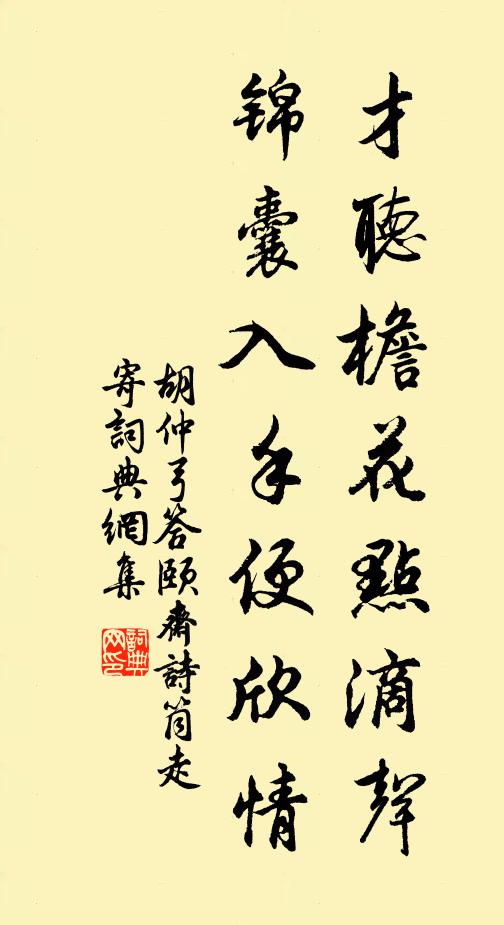 才聽檐花點滴聲
锦囊入手便欣情
胡仲弓答頤齋詩筒走
寄詞典網集
詞典
网印